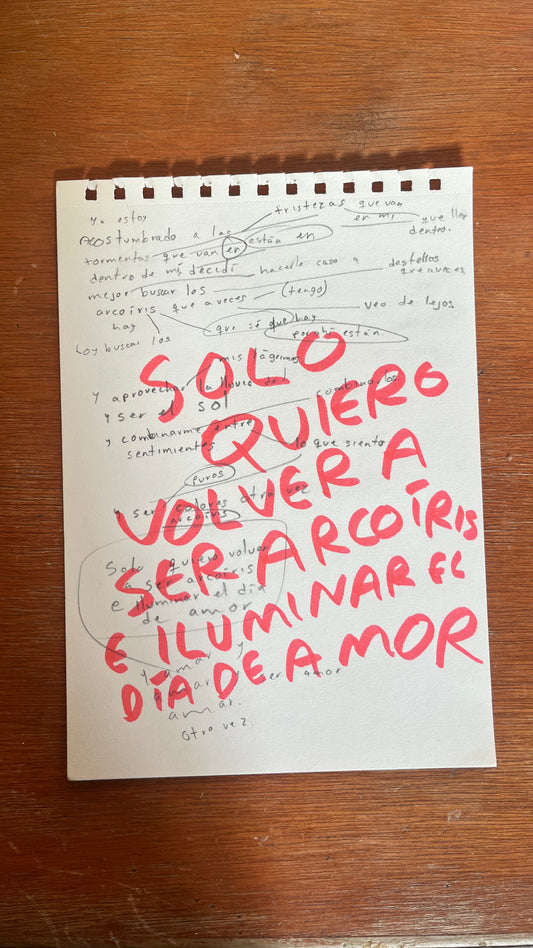 Ya estoy
tristezas que van
en mi
Acostumbrado a las
que llevo
dentro.
tormentas que van en están en
dentro de mi, decidí hacerle caso a destellos
que a veces
mejor buscar los
arcoíris que a veces (tengo)
veo de lejos
hay
que sé que hay
por ahí están.
hoy buscar los
mis lágrimas
y aprovechar la lluvia de
y ser el sol
y combinarme entre
combinarlos
sentimientos
lo que siento
puros
y ser colores otra vez
arcoíris
Solo quiero volver
a ser arcoíris
e iluminar el día
de amor
y amar y
amar
ser amor
amar.
otra vez.
SOLO
QUIERO
VOLVER A
SER ARCOÍRIS
E ILUMINAR EL
DÍA DE AMOR